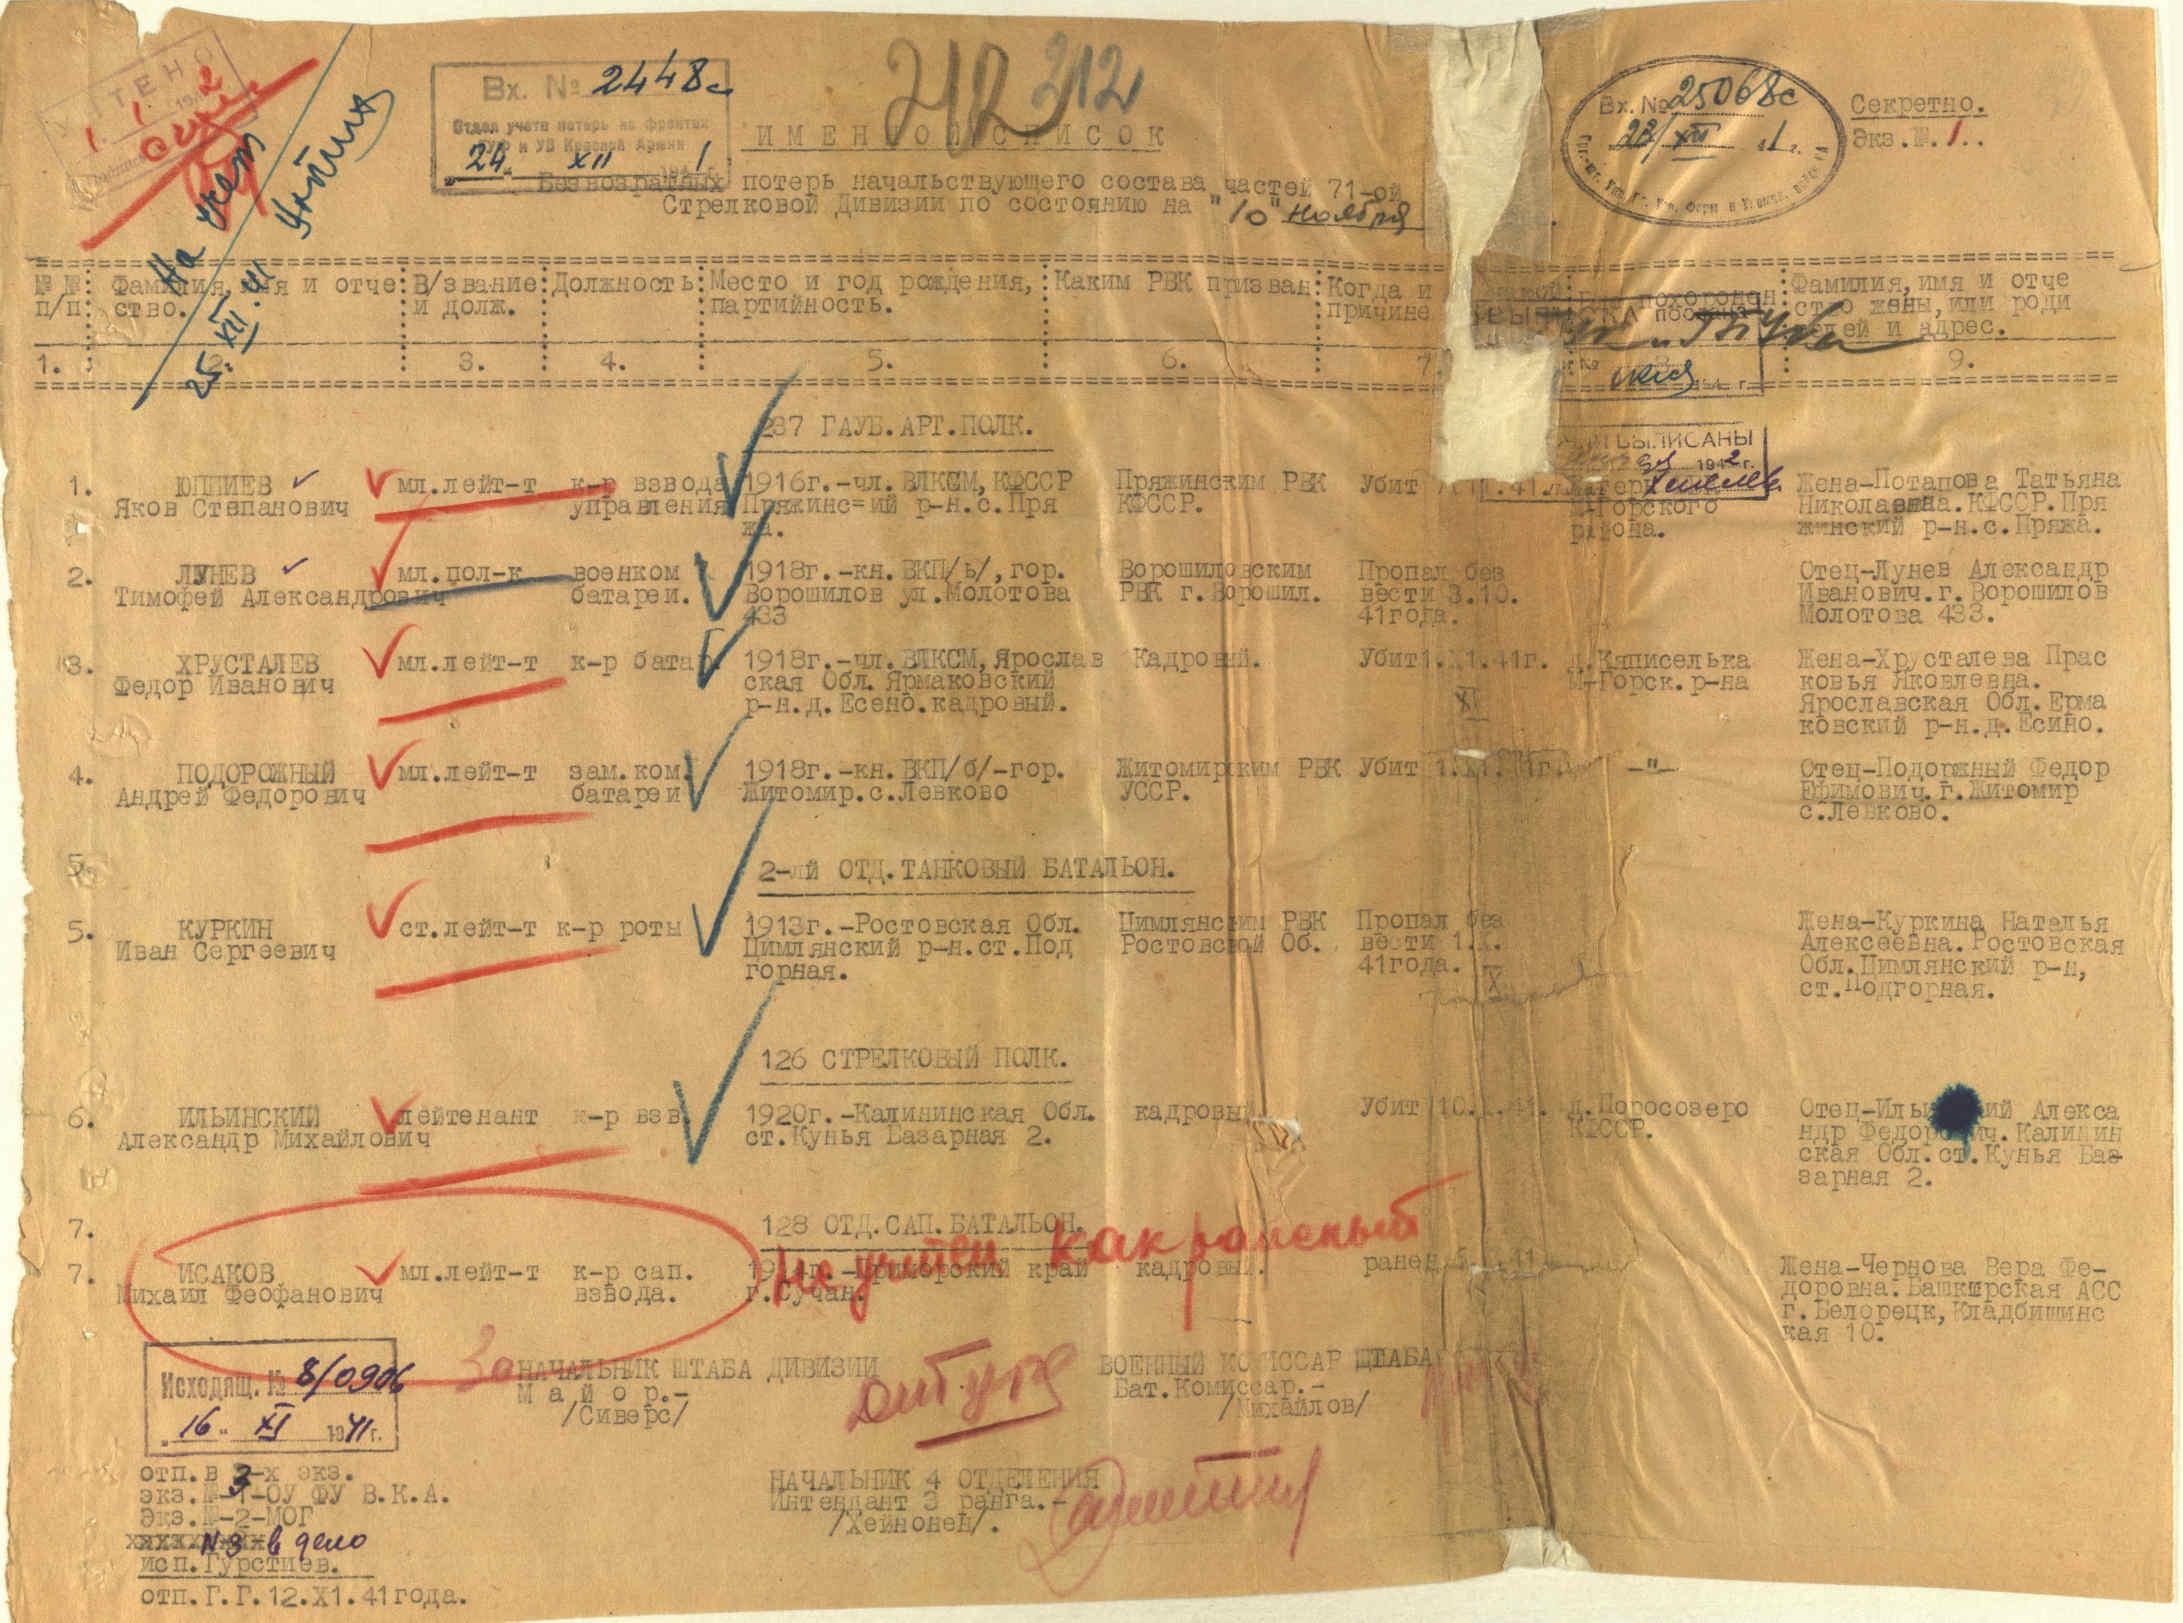 УЧТЕНО
На учет
25.XII.41
Вх. № 2448с
Отдел учета потерь на фронтах
и УВ Красной Армии
24. XII 1
212 212
Вх. № 25068с
23/XII 41г.
Секретно.
Экз.№.1..
ИМЕННОЙ СПИСОК
Безвозратных потерь начальствующего состава частей 71-ой
Стрелковой Дивизии по состоянию на "10" ноября
№ № п/п: Фамилия, имя и отче ство. : В/звание и долж. : Должность : Место и год рождения, партийность. : Каким РВК призван : Когда и причине похоронен : Фамилия, имя и отче ство жены, или роди телей и адрес.
ВЫПИСКА
1. 2. 3. 4. 5. 6. 7. 8. 9.
237 ГАУБ.АРТ.ПОЛК.
ВЫПИСАНЫ
1942 г.
1. ЮППИЕВ мл.лейт-т к-р взвода 1916г.-чл.ВЛКСМ,КФССР Пряжинским РВК Убит .41 Жена-Потапова Татьяна
Яков Степанович управления Пряжинс=ий р-н.с.Пря КФССР. М-Горского Николаевна.КФССР.Пря
жа. района. жинский р-н.с.Пряжа.
2. ЛУНЕВ мл.пол-к военком 1918г.-кн.ВКП/ь/,гор. Ворошиловским Пропал без Отец-Лунев Александр
Тимофей Александрович батареи. Ворошилов ул.Молотова РВК г.Ворошил. вести 3.10. Иванович.г.Ворошилов
433 41года. Молотова 433.
3. ХРУСТАЛЕВ мл.лейт-т к-р батар. 1918г.-чл.ВЛКСМ,Ярослав Кадровый. Убит1.X1.41г. д.Кяписелька Жена-Хрусталева Прас
Федор Иванович ская Обл.Ярмаковский XI М-Горск.р-на ковья Яковлевна.
р-н.д.Есено.кадровый. Ярославская Обл.Ерма
ковский р-н.д.Есино.
4. ПОДОРОЖНЫЙ мл.лейт-т зам.ком. 1918г.-кн.ВКП/б/-гор. Житомирским РВК Убит 1. г. -"- Отец-Подоржный Федор
Андрей Федорович батареи Житомир.с.Левково УССР. Ефимович.г.Житомир
с.Левково.
5.
2-ЛЙ ОТД.ТАНКОВЫЙ БАТАЛЬОН.
5. КУРКИН ст.лейт-т к-р роты 1913г.-Ростовская Обл. Цимлянским РВК Пропал без Жена-Куркина Наталья
Иван Сергеевич Цимлянский р-н.ст.Под Ростовской Об. вести 1.X. Алексеевна.Ростовская
горная. 41года. X Обл.Цимлянский р-н,
ст.Подгорная.
126 СТРЕЛКОВЫЙ ПОЛК.
6. ИЛЬИНСКИЙ лейтенант к-р взв 1920г.-Калининская Обл. кадровый Убит 10. .41. д.Поросозеро Отец-Ильинский Алекса
Александр Михайлович ст.Кунья Базарная 2. КФССР. ндр Федорович.Калинин
ская Обл.ст.Кунья Баз
зарная 2.
7. 128 ОТД.САП.БАТАЛЬОН.
Не учтен как раненый
7. ИСАКОВ мл.лейт-т к-р сап. г.-Приморский край кадровый. ранен Жена-Чернова Вера Фе-
Михаил Феофанович взвода. г.Сучан. доровна.Башкирская АСС
г.Белорецк,Кладбишинс
кая 10.
Исходящ. № 8/0906
"16" XI 1941г.
За НАЧАЛЬНИК ШТАБА ДИВИЗИИ
Майор.-
/Сиверс/
ВОЕННЫЙ КОМИССАР ШТАБА
Бат.Комиссар.-
/Михайлов/
НАЧАЛЬНИК 4 ОТДЕЛЕНИЯ
Интендант 3 ранга.-
/Хейнонен/.
отп.в 3-х экз.
экз.№-1-ОУ ФУ В.К.А.
Экз.№-2-МОГ
N3 в дело
исп.Гурстиев.
отп.Г.Г.12.X1.41года.